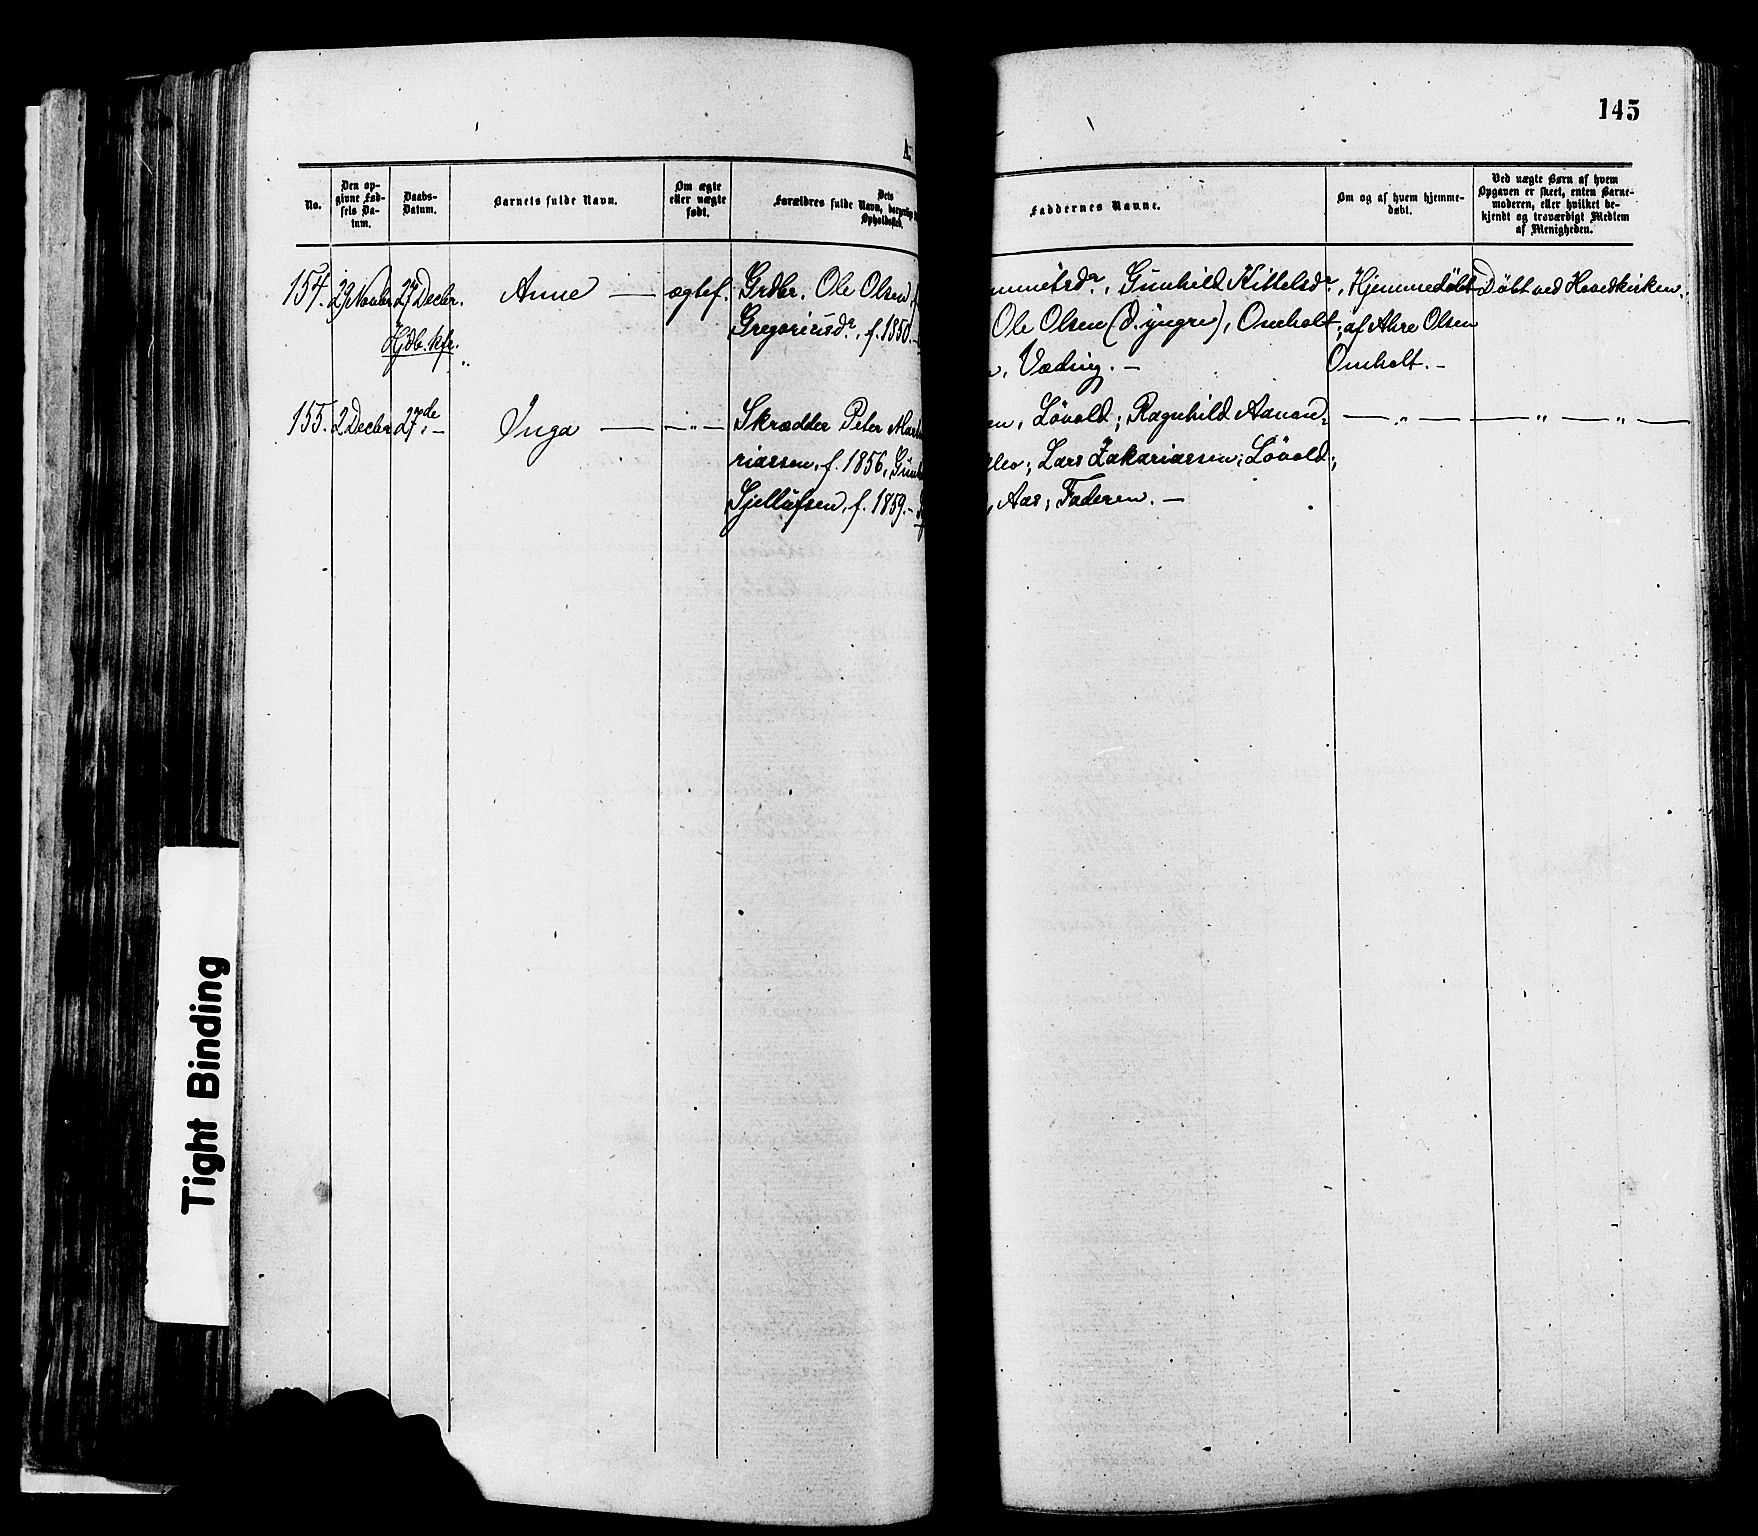 145
A.
No.
Den op-
givne Fød-
sels Da-
tum.
Daabs-
Datum.
Barnets fulde Navn.
Om ægte
eller uægte
født.
Dets
Forældres fulde Navn, borgerlige
Opholdssted.
Faddernes Navne.
Om og af hvem hjemme-
døbt.
Ved uægte Børn af hvem
Opgaven er skeet, enten Barne-
moderen, eller hvilket be-
kjendt og troværdigt Medlem
af Menigheden.
154. 29 Novbr. 27 Decbr. Anne — ægtef. Grdbr. Ole Olsen
Hjdb. kfr. Gregoriusdr, f. 1850. —
Gunhild Kittelsdr,
Ole Olsen (d. yngre), Omholt;
Væding. —
Hjemmedøbt
af Ahre Olsen
Omholt. —
Døbt ved Hovedkirken.
155. 2 Decbr. 27de „ — Inga — — „ — Skrædder Peter
riassen, f. 1856,
Tjellufsen, f. 1859. —
en, Løvold; Ragnhild
Lars Zakariassen, Løvold;
, Aas; Faderen. —
— „ — — „ — „ —
Tight Binding